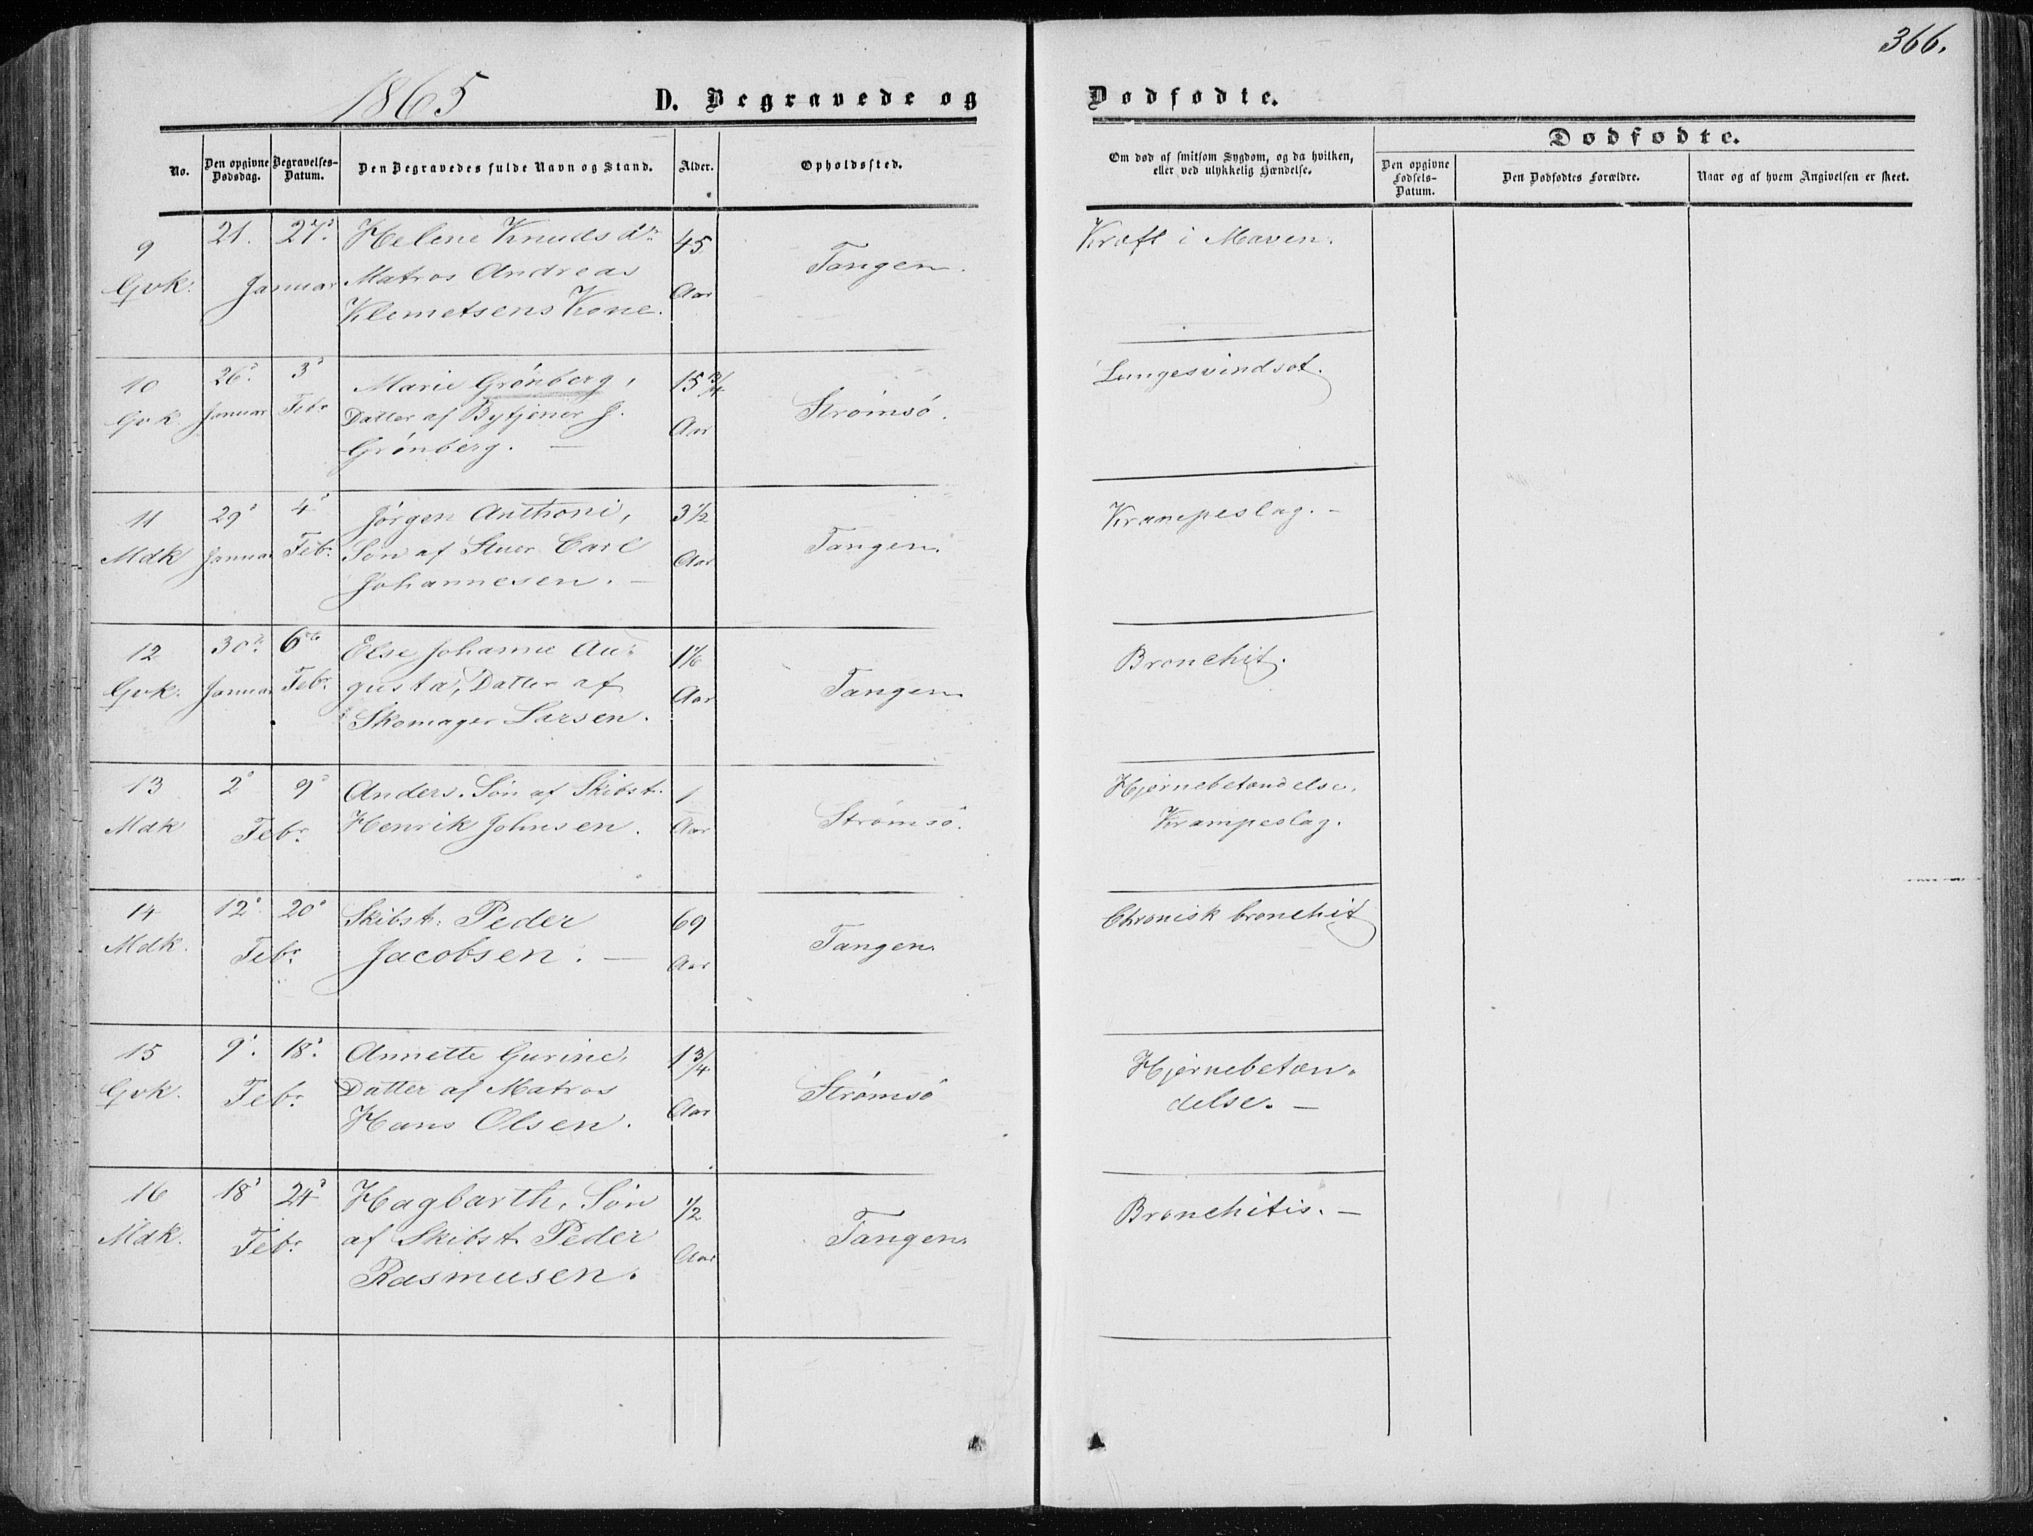 366.
1865
D. Begravede og Dødfødte.
No.
Den opgivne Dødsdag.
Begravelses-Datum.
Den Begravedes fulde Navn og Stand.
Alder.
Opholdssted.
Om død af smitsom Sygdom, og da hvilken, eller ved ulykkelig Hændelse.
Dødfødte.
Den opgivne Fødsels-Datum.
Den Dødfødtes Forældre.
Naar og af hvem Angivelsen er skeet.
9 21. 27. Helene Knudsdr 45 Tangen. Kræft i Maven.
Gvk. Januar Matros Andreas Aar
Klemetsens Kone.
10 26. 3 Marie Grönberg, 15 3/4 Strömsö. Lungesvindsot.
Gvk. Januar Febr Datter af Bytjener J. Aar
Grönberg. —
11 29 4 Jörgen Anthoni, 3 1/2 Tangen. Krampeslag. —
Mdk Januar Febr. Sön af Stuer Carl Aar
Johannesen. —
12 30te 6te Else Johanne Au- 1 1/6 Tangen Bronchit.
Gvk. Januar Febr. gusta, Datter af Aar
Skomager Larsen.
13 2 9 Anders. Sön af Skibst. 1 Strømsö. Hjernebetændelse.
Mdk Febr. Henrik Johnsen. Aar Krampeslag.
14 12 20 Skibst. Peder 69 Tangen. Chronisk bronchit
Mdk. Febr. Jacobsen. — Aar
15 9. 18. Annette Gurine, 1 3/4 Strømsö Hjernebetæn-
Gvk. Febr. Datter af Matros Aar delse. —
Hans Olsen.
16 18 24 Hagbarth, Sön 1/2 Tangen. Bronchitis. —
Mdk. Febr. af Skibst. Peder Aar
Rasmusen.